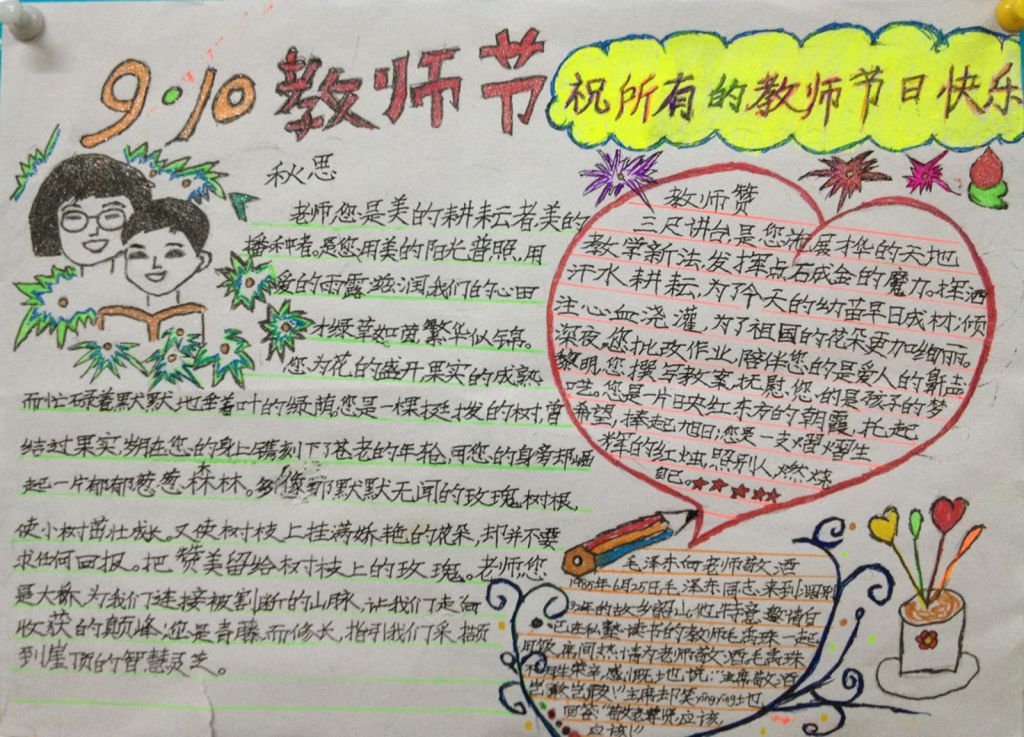 9·10 教师节
祝所有的教师节日快乐
秋思
老师,您是美的耕耘者,美的
播种者。是您用美的阳光普照,用
爱的雨露滋润,我们的心田
才绿草如茵,繁华似锦。
您为花的盛开,果实的成熟
而忙碌着默默地垂着叶的绿荫,您是一棵挺拔的树,曾
结过果实,岁月在您的身上镌刻下了苍老的年轮,可您的身旁却崛
起一片郁郁葱葱森林。多像那默默无闻的玫瑰树根,
使小树茁壮成长。又使树枝上挂满娇艳的花朵,却并不要
求任何回报。把赞美留给树枝上的玫瑰。老师,您
是大桥,为我们连接被割断的山脉,让我们走向
收获的颠峰;您是青藤而修长,指引我们采撷
到崖顶的智慧灵芝。
教师赞
三尺讲台,是您施展才华的天地
教学新法,发挥点石成金的魔力。挥洒
汗水耕耘,为了今天的幼苗早日成材;倾
注心血浇灌,为了祖国的花朵更加绚丽。
深夜,您批改作业,陪伴您的是爱人的鼾声
黎明,您撰写教案,抚慰您的是孩子的梦
呓。您是一片映红东方的朝霞,托起
希望,捧起旭日;您是一支熠熠生
辉的红烛,照别人燃烧
自己。
毛泽东向老师敬酒
年6月25日毛泽东同志来到
年的故乡韶山,他特意邀请自
己在私塾读书的教师毛禹珠一起
用饭,席间热情为老师敬酒,毛禹珠
感慨地说:"主席敬酒
岂敢岂敢!"主席却笑yingying地
回答:"敬老尊贤,应该,
应该!"